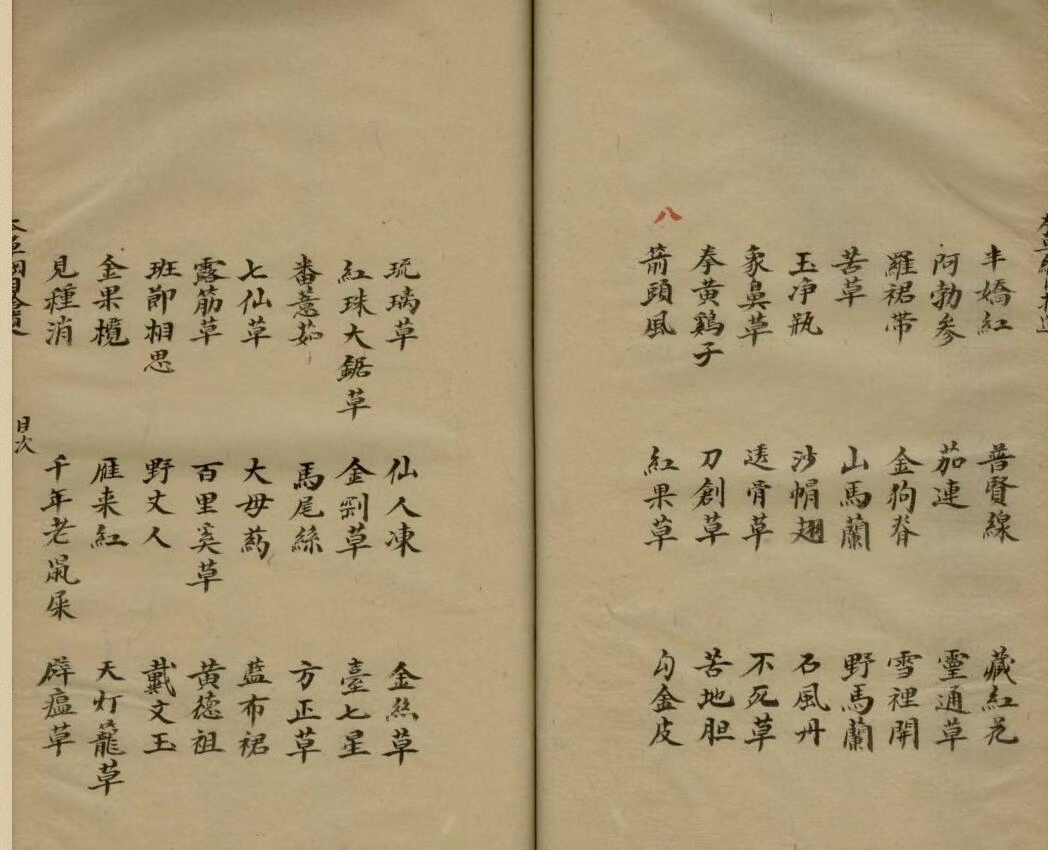 本草綱目拾遺
半嬌紅 普賢線 藏紅花
阿勃參 茄連 靈通草
羅裙帶 金狗脊 雪裡開
苦草 山馬蘭 野馬蘭
玉净瓶 沙帽翅 石風丹
象鼻草 透骨草 不死草
奉黃鷄子 刀創草 苦地胆
八
箭頭風 紅果草 勾金皮
琉璃草 仙人凍 金絲草
紅珠大鋸草 金剛草 臺七星
番薏茹 馬尾絲 方正草
七仙草 大毋药 藍布裙
露筋草 百里奚草 黃德祖
班節相思 野丈人 戴文玉
金果欖 雁来紅 天灯籠草
見種消 千年老鼠屎 辟瘟草
本草綱目拾遺 目次